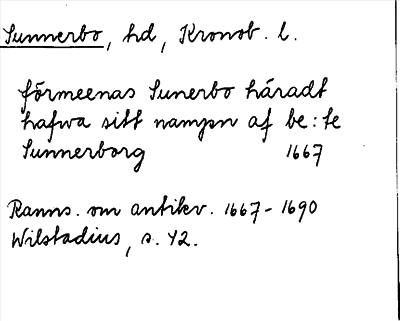 Sunnerbo, hd, Kronob. l.
förmeenas Sunerbo häradt
hafwa sitt nampn af be:te
Sunnerborg 1667
Ranns. om antikv. 1667-1690
Wilstadius, s. 42.